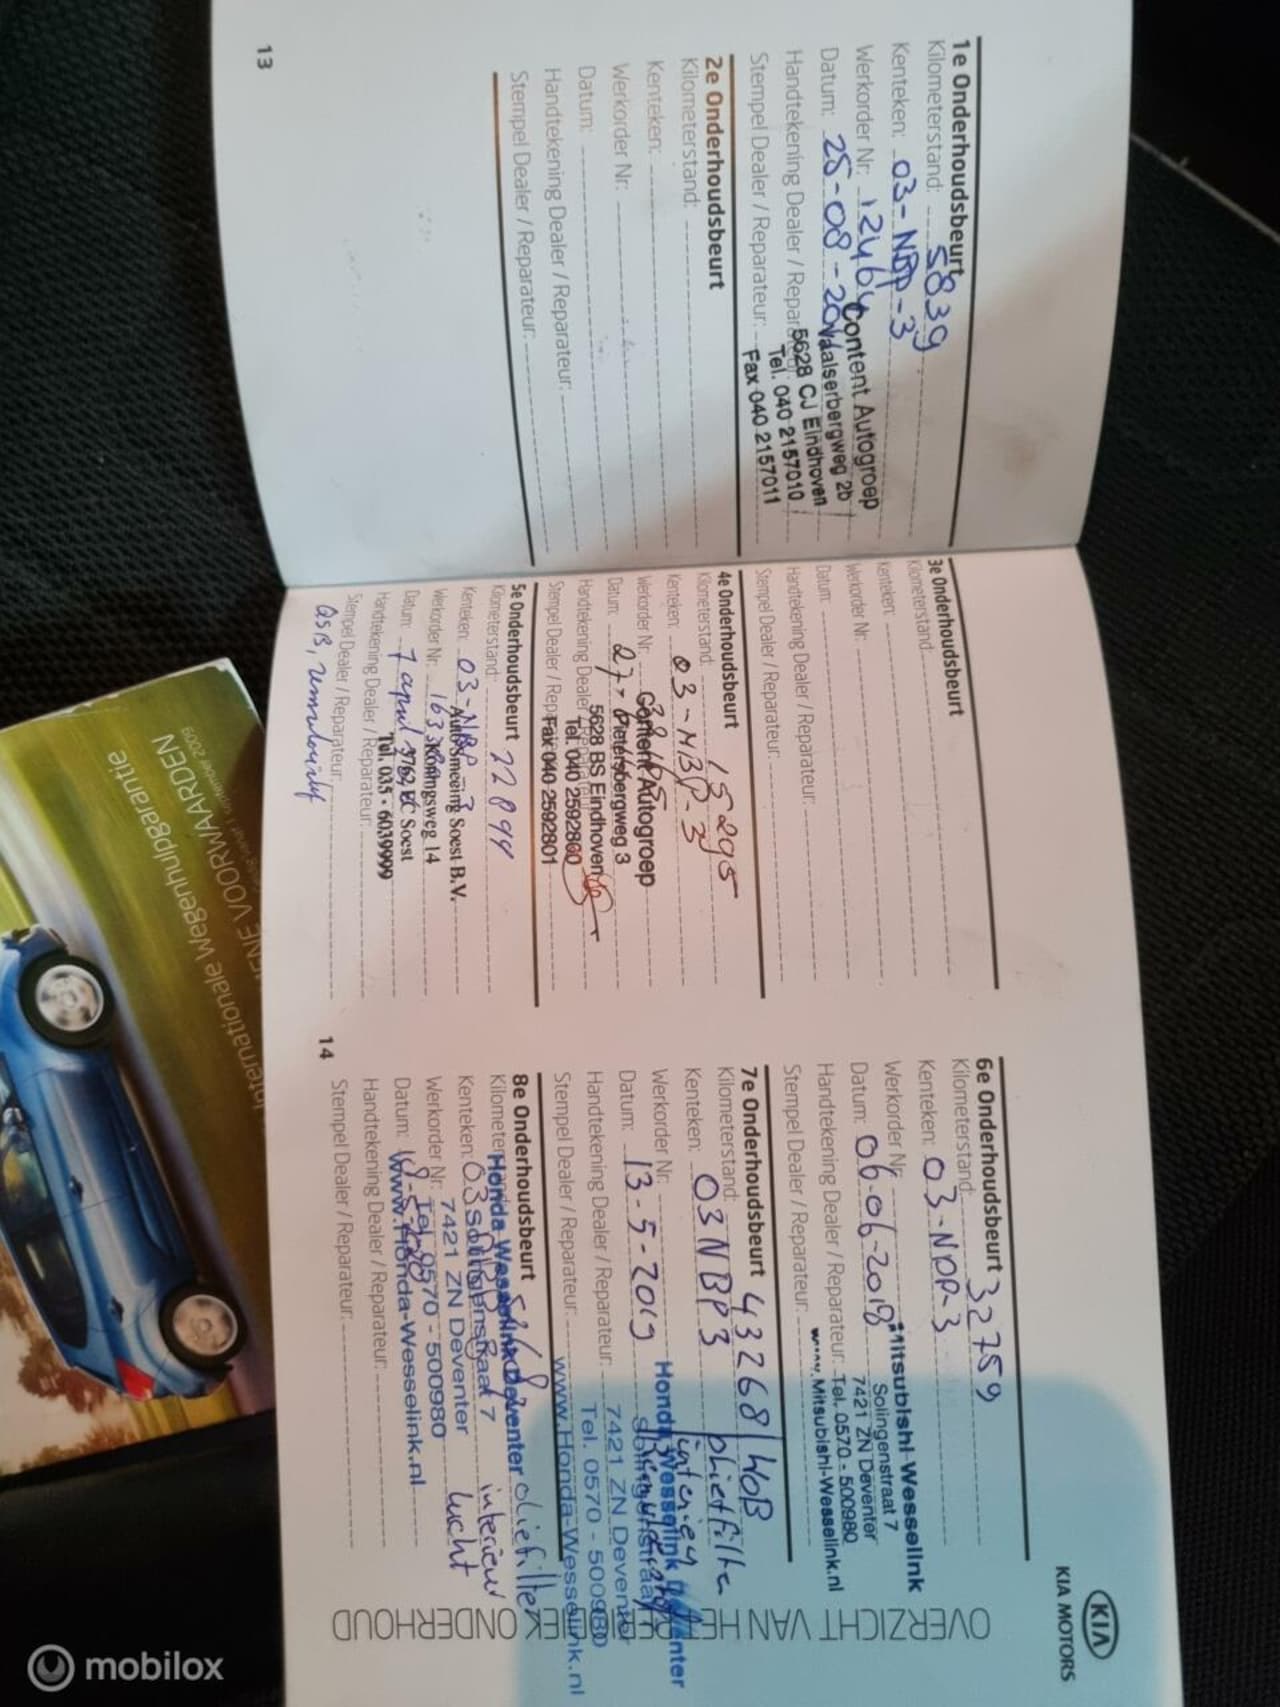 KIA
KIA MOTORS
OVERZICHT VAN HET PERIODIEK ONDERHOUD
1e Onderhoudsbeurt
Kilometerstand: 5839
Kenteken: 03-NBP-3
Werkorder Nr:
Datum: 25-08-20
Handtekening Dealer / Reparateur:
Stempel Dealer / Reparateur:
Content Autogroep
Vaalserbergweg 2b
5628 CJ Eindhoven
Tel. 040 2157010
Fax 040 2157011
2e Onderhoudsbeurt
Kilometerstand:
Kenteken:
Werkorder Nr:
Datum:
Handtekening Dealer / Reparateur:
Stempel Dealer / Reparateur:
13
3e Onderhoudsbeurt
Kilometerstand:
Kenteken:
Werkorder Nr:
Datum:
Handtekening Dealer / Reparateur:
Stempel Dealer / Reparateur:
4e Onderhoudsbeurt
Kilometerstand: 15295
Kenteken: 03-NBP-3
Werkorder Nr:
Datum: 27-
Handtekening Dealer / Reparateur:
Stempel Dealer / Reparateur:
Content Autogroep
Pietersbergweg 3
5628 BS Eindhoven
Tel. 040 2592800
Fax 040 2592801
5e Onderhoudsbeurt
Kilometerstand: 22899
Kenteken: 03-NBP-3
Werkorder Nr:
Datum: 7 april
Handtekening Dealer / Reparateur:
Stempel Dealer / Reparateur:
Auto Smeeing Soest B.V.
Koningsweg 14
3762 EC Soest
Tel. 035 - 6039999
14
6e Onderhoudsbeurt
Kilometerstand: 32759
Kenteken: 03-NDP-3
Werkorder Nr:
Datum: 06-06-2018
Handtekening Dealer / Reparateur:
Stempel Dealer / Reparateur:
Mitsubishi Wesselink
Solingenstraat 7
7421 ZN Deventer
Tel. 0570 - 500980
www.Mitsubishi-Wesselink.nl
7e Onderhoudsbeurt
Kilometerstand: 43268
Kenteken: 03NBP3
Werkorder Nr:
Datum: 13-5-2019
Handtekening Dealer / Reparateur:
Stempel Dealer / Reparateur:
Honda Wesselink Deventer
Solingenstraat
7421 ZN Deventer
Tel. 0570 - 500980
www.Honda-Wesselink.nl
8e Onderhoudsbeurt
Kilometerstand:
Kenteken:
Werkorder Nr:
Datum:
Handtekening Dealer / Reparateur:
Stempel Dealer / Reparateur:
Honda Wesselink Deventer
Solingenstraat 7
7421 ZN Deventer
Tel. 0570 - 500980
www.Honda-Wesselink.nl
oliefilter
interieur
lucht
Internationale Wegenhulpgarantie
VOORWAARDEN
september 2009
mobilox